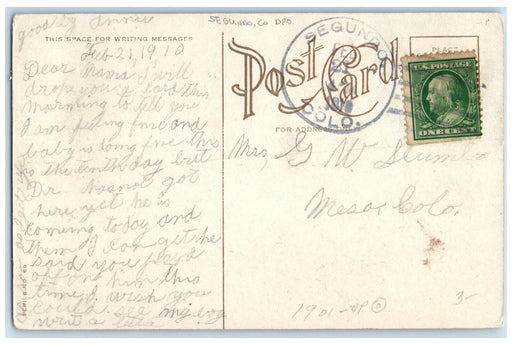 goodby Annie
SEGUNDO, CO DPO
THIS SPACE FOR WRITING MESSAGES
Feb 21, 1910
Dear Mama I will
drop you a card this
morning to tell you
I am feeling fine and
baby is doing fine this
is the tenth day but
Dr. hasnot got
here yet he is
comeing today and
then I can get he
said you
off on him this
time I wish you
could see my
write a
Post Card
SEGUNDO
COLO.
PLACE
U.S. POSTAGE
ONE CENT
FOR ADDRESS
Mrs, G W
Mesa, Colo.
1901-OP
3-